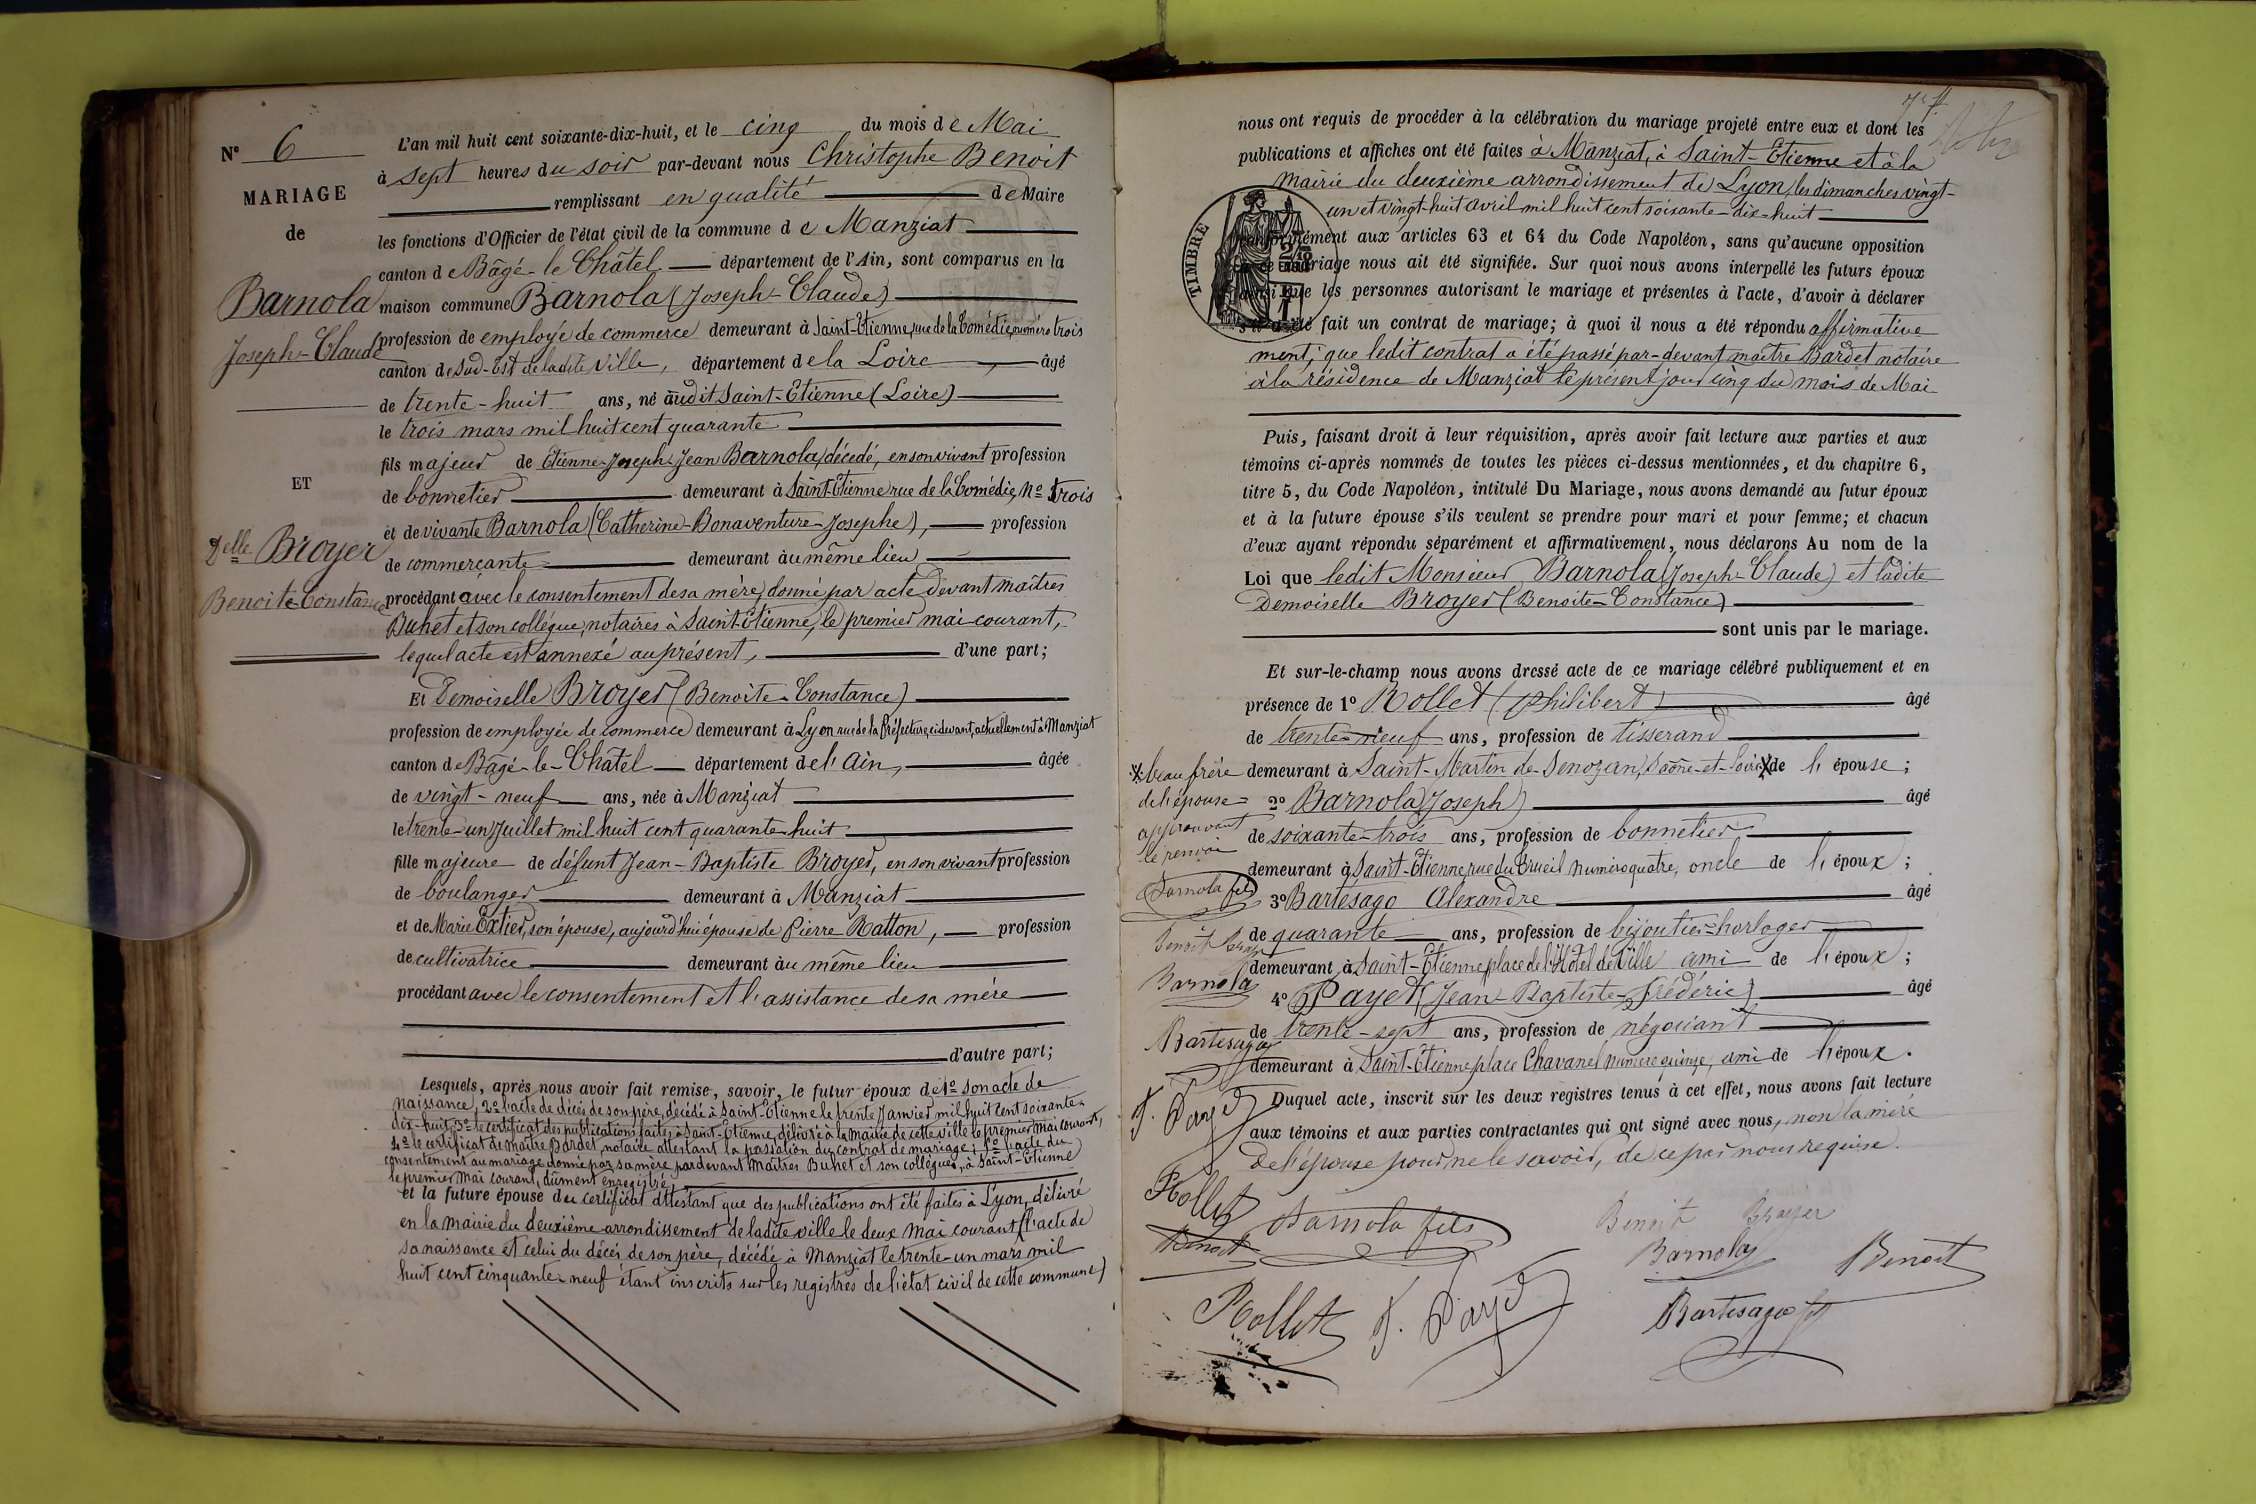 N° 6
MARIAGE
de
Barnola
Joseph-Claude
ET
Delle Broyer
Benoite-Constance
L'an mil huit cent soixante-dix-huit, et le cinq du mois de Mai
à sept heures du soir par-devant nous Christophe Benoit
remplissant en qualité de Maire
les fonctions d'Officier de l'état civil de la commune de Manziat
canton de Bâgé-le-Châtel département de l'Ain, sont comparus en la
maison commune Barnola (Joseph-Claude)
profession de employé de commerce demeurant à Saint-Etienne, rue de la Comédie, numéro trois
canton de Sud-Est de ladite Ville, département de la Loire, âgé
de trente-huit ans, né audit Saint-Etienne (Loire)
le trois mars mil huit cent quarante
fils majeur de Etienne-Joseph-Jean Barnola, décédé, en son vivant profession
de bonnetier demeurant à Saint-Etienne rue de la Comédie, No trois
et de vivante Barnola (Catherine-Bonaventure-Josephe), profession
de commerçante demeurant au même lieu
procédant avec le consentement de sa mère, donné par acte devant maîtres
Buhet et son collègue, notaires à Saint-Etienne, le premier mai courant,
lequel acte est annexé au présent, d'une part;
Et Demoiselle Broyer (Benoite-Constance)
profession de employée de commerce demeurant à Lyon rue de la Préfecture, ci devant, actuellement à Manziat
canton de Bâgé-le-Châtel département de l'Ain, âgée
de vingt-neuf ans, née à Manziat
le trente-un Juillet mil huit cent quarante-huit
fille majeure de défunt Jean-Baptiste Broyer, en son vivant profession
de boulanger demeurant à Manziat
et de Marie Extier, son épouse, aujourd'hui épouse de Pierre Ratton, profession
de cultivatrice demeurant au même lieu
procédant avec le consentement et l'assistance de sa mère
d'autre part;
Lesquels, après nous avoir fait remise, savoir, le futur époux de 1o son acte de
naissance, 2o l'acte de décès de son père, décédé à Saint-Etienne le trente Janvier mil huit cent soixante-
dix-huit, 3o le certificat des publications faites à Saint-Etienne, délivré à la mairie de cette ville le premier mai courant,
4o le certificat de maître Bardet, notaire attestant la passation du contrat de mariage; 5o l'acte du
consentement au mariage donné par sa mère pardevant maîtres Buhet et son collègue, à Saint-Etienne
le premier mai courant, dûment enregistré
et la future épouse du certificat attestant que des publications ont été faites à Lyon, délivré
en la mairie du deuxième arrondissement de ladite ville le deux mai courant (l'acte de
sa naissance et celui du décès de son père, décédé à Manziat le trente-un mars mil
huit cent cinquante-neuf étant inscrits sur les registres de l'état civil de cette commune)
nous ont requis de procéder à la célébration du mariage projeté entre eux et dont les
publications et affiches ont été faites à Manziat, à Saint-Etienne et à la
mairie du deuxième arrondissement de Lyon, les dimanches vingt-
un et vingt-huit avril mil huit cent soixante-dix-huit
TIMBRE
conformément aux articles 63 et 64 du Code Napoléon, sans qu'aucune opposition
à ce mariage nous ait été signifiée. Sur quoi nous avons interpellé les futurs époux
ainsi que les personnes autorisant le mariage et présentes à l'acte, d'avoir à déclarer
s'il a été fait un contrat de mariage; à quoi il nous a été répondu affirmative
ment; que ledit contrat a été passé par-devant maître Bardet notaire
à la résidence de Manziat le présent jour cinq du mois de Mai
Puis, faisant droit à leur réquisition, après avoir fait lecture aux parties et aux
témoins ci-après nommés de toutes les pièces ci-dessus mentionnées, et du chapitre 6,
titre 5, du Code Napoléon, intitulé Du Mariage, nous avons demandé au futur époux
et à la future épouse s'ils veulent se prendre pour mari et pour femme; et chacun
d'eux ayant répondu séparément et affirmativement, nous déclarons Au nom de la
Loi que ledit Monsieur Barnola (Joseph-Claude) et ladite
Demoiselle Broyer (Benoite-Constance)
sont unis par le mariage.
Et sur-le-champ nous avons dressé acte de ce mariage célébré publiquement et en
présence de 1o Rollet (Philibert) âgé
de trente-neuf ans, profession de tisserand
demeurant à Saint-Martin-de-Senozan, Saône-et-Loire X de l'épouse;
2o Barnola (Joseph) âgé
de soixante-trois ans, profession de bonnetier
demeurant à Saint-Etienne, rue du Treuil numéro quatre, oncle de l'époux;
3o Bartesago Alexandre âgé
de quarante ans, profession de bijoutier-horloger
demeurant à Saint-Etienne, place de l'Hôtel de Ville ami de l'époux;
4o Payet (Jean-Baptiste-Frédéric) âgé
de trente-sept ans, profession de négociant
demeurant à Saint-Etienne place Chavanel numéro quinze, ami de l'époux.
Duquel acte, inscrit sur les deux registres tenus à cet effet, nous avons fait lecture
aux témoins et aux parties contractantes qui ont signé avec nous, non la mère
de l'épouse pour ne le savoir, de ce par nous requise.
X beau frère
de l'épouse
approuvant
le renvoi
Barnola fils
Benoit Broyer
Barnola
Bartesago
F. Payet
Rollet
Benoit
Barnola fils
Benoit Broyer
Barnola
Benoit
Rollet
F. Payet
Bartesago